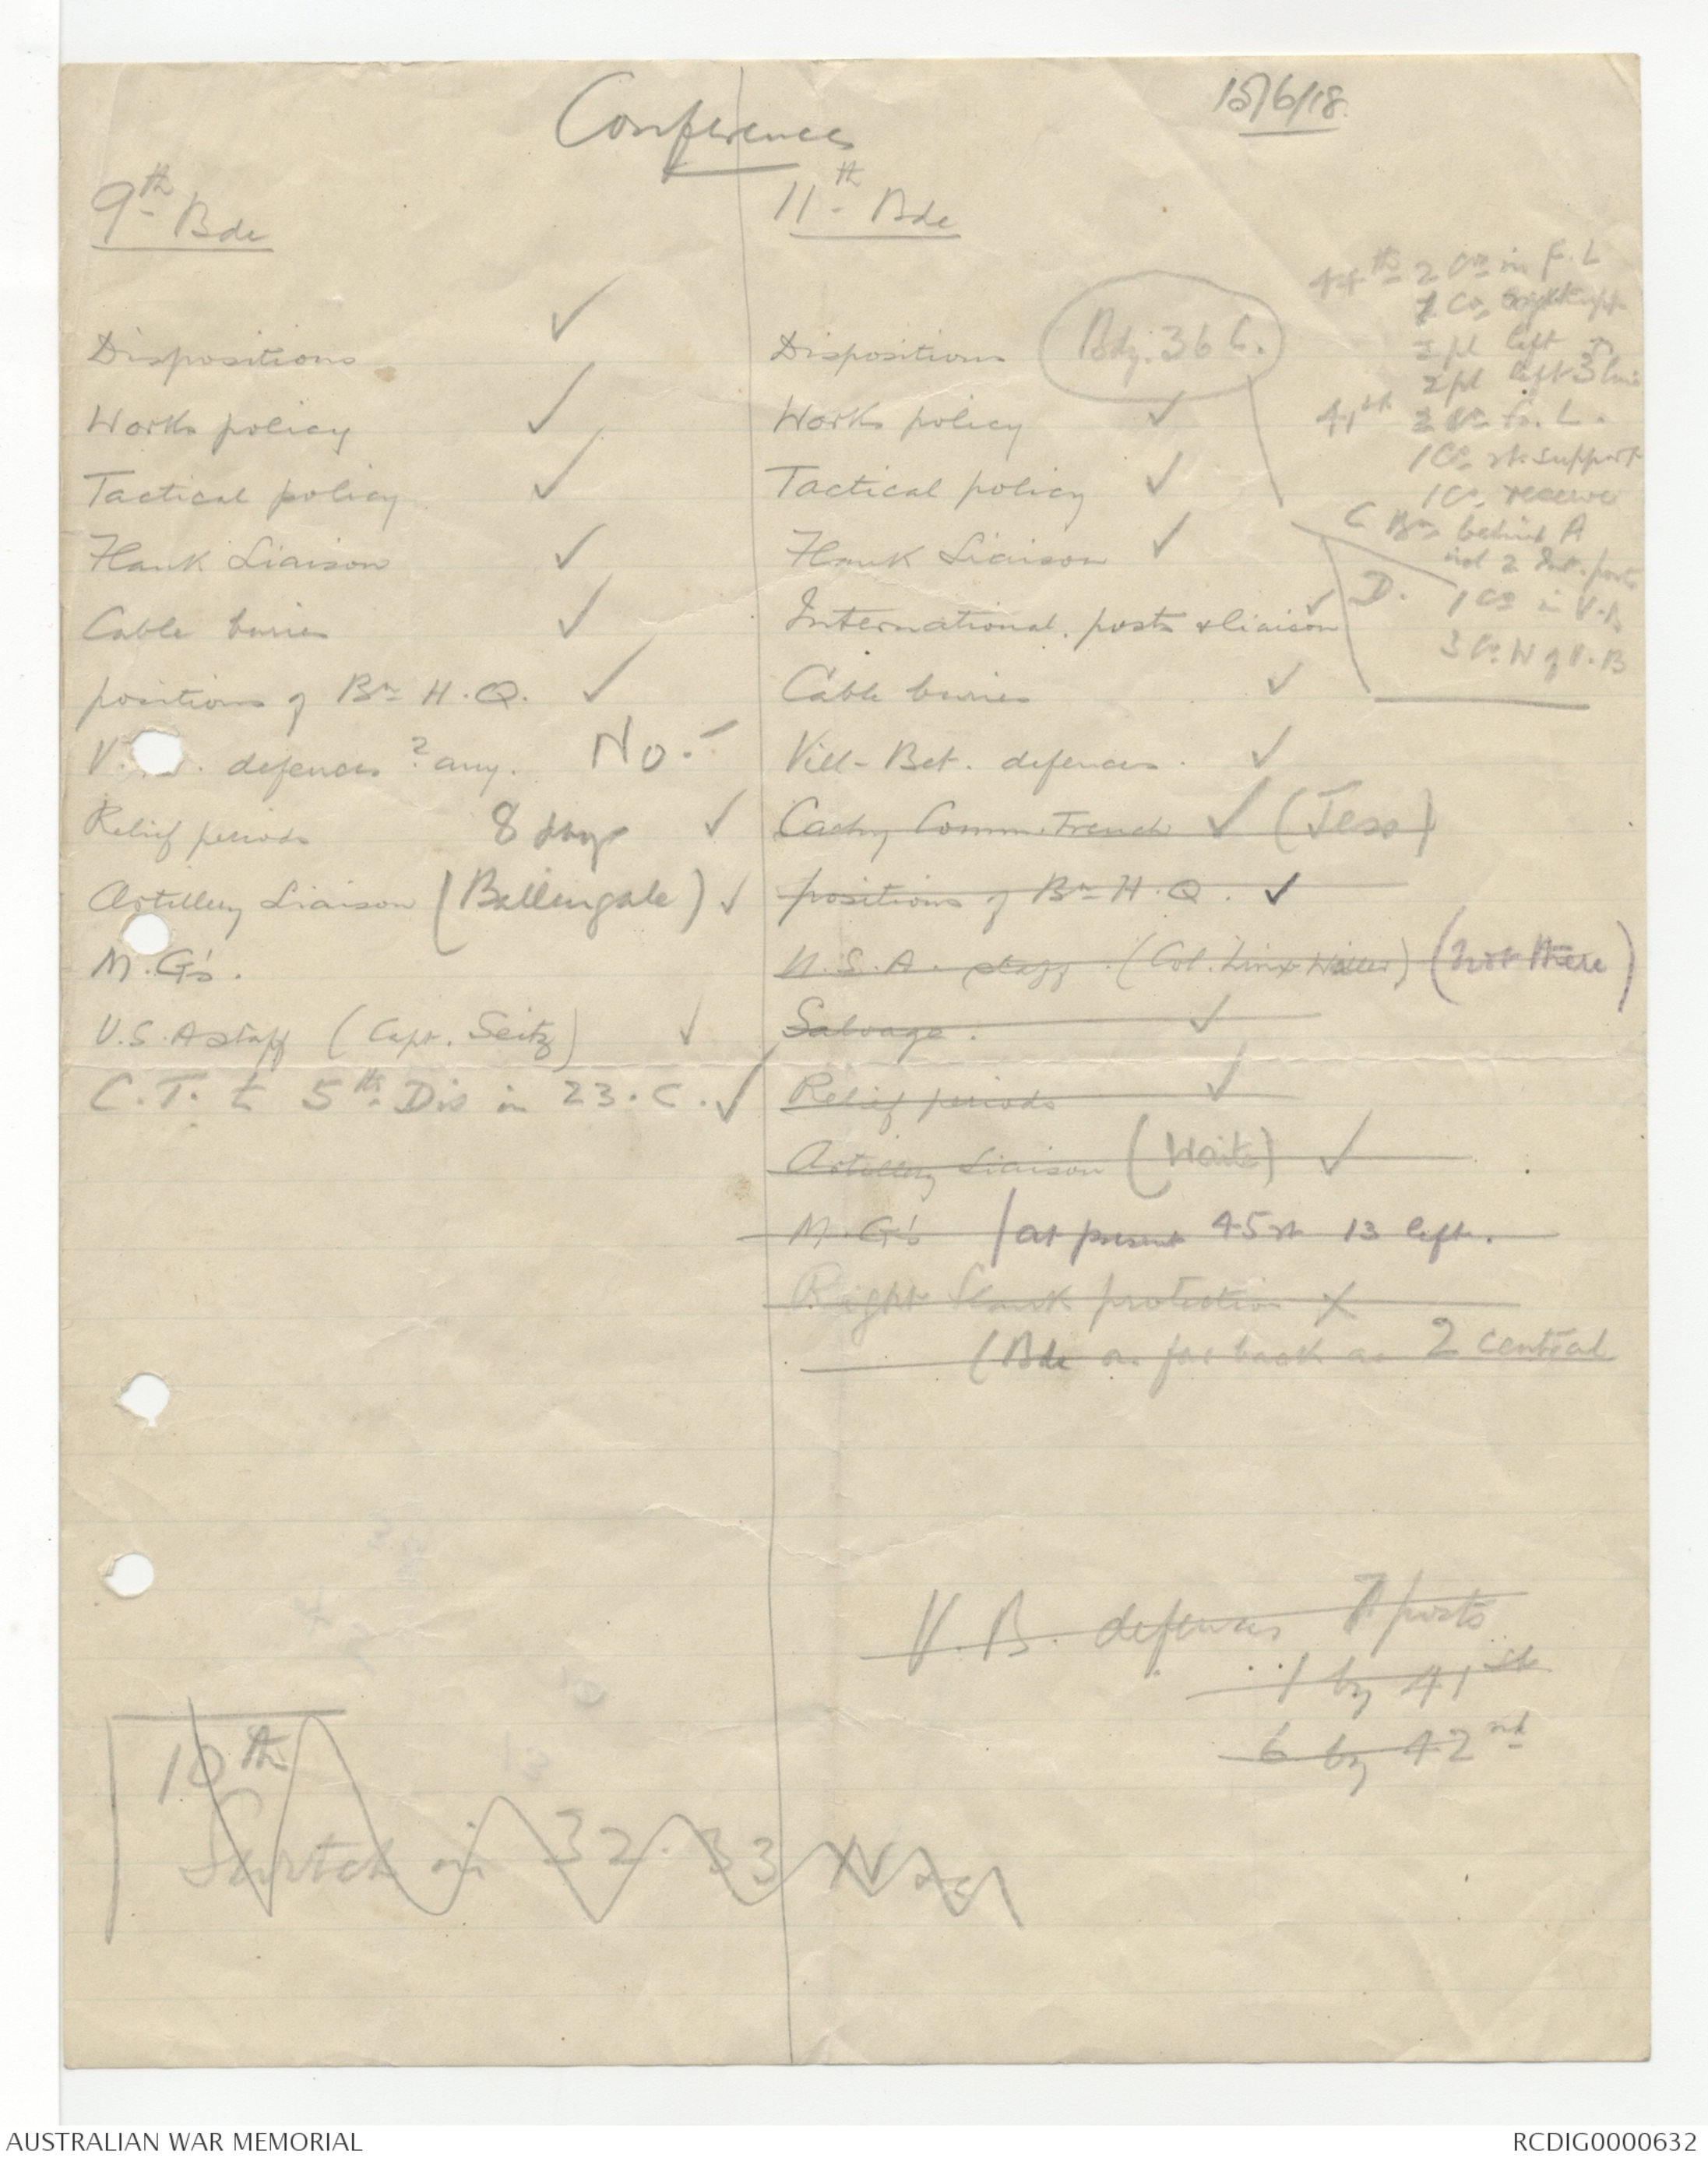 Conferences
15/6/18.
9th Bde
Dispositions ✓
Works policy ✓
Tactical policy ✓
Flank Liaison ✓
Cable buries ✓
positions of Bn H.Q. ✓
V. . defences ? any. No.
Relief periods 8 days ✓
Artillery Liaison (Ballingale) ✓
M.G's.
U.S.A staff (Capt. Seitz) ✓
C.T. to 5th Div in 23.C. ✓
11th Bde
Dispositions Bdy. 36 C.
Works policy ✓
Tactical policy ✓
Flank Liaison ✓
International posts & liaison ✓
Cable buries ✓
Vill-Bret. defences. ✓
Cachy Comm. Trench ✓ (Jess)
positions of Bn H.Q. ✓
U.S.A. staff (Col. ) (not there)
Salvage. ✓
Relief periods ✓
Artillery Liaison (Waite) ✓
M.G's (at present 45 rt 13 left.
Right Flank protection X
(Bde as far back as 2 central
44th 2 Cos in F.L
1 Co. right
2 pl left
2 pl left 3 line
41st 2 Cos F.L.
1 Co. rt support
1 Co. reserve
C Bn behind A
incl 2 Int. posts
D. 1 Co in V.B
3 Cos W of V.B
V.B. defences 7 posts
1 by 41st
6 by 42nd
10th
Switch in 32. 33
AUSTRALIAN WAR MEMORIAL
RCDIG0000632